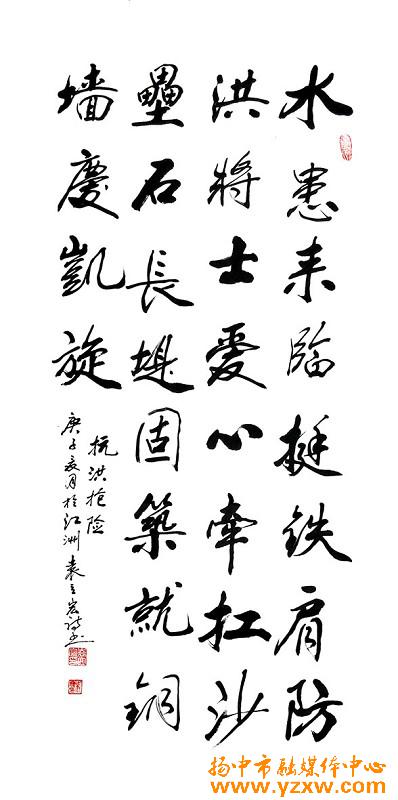 水患来临挺铁肩防
洪將士爱心牵扛沙
壘石長堤固築就铜
墙慶凱旋
抗洪抢险
庚子夏月於江洲袁立宏诗书
扬中市融媒体中心
www.yzxw.com